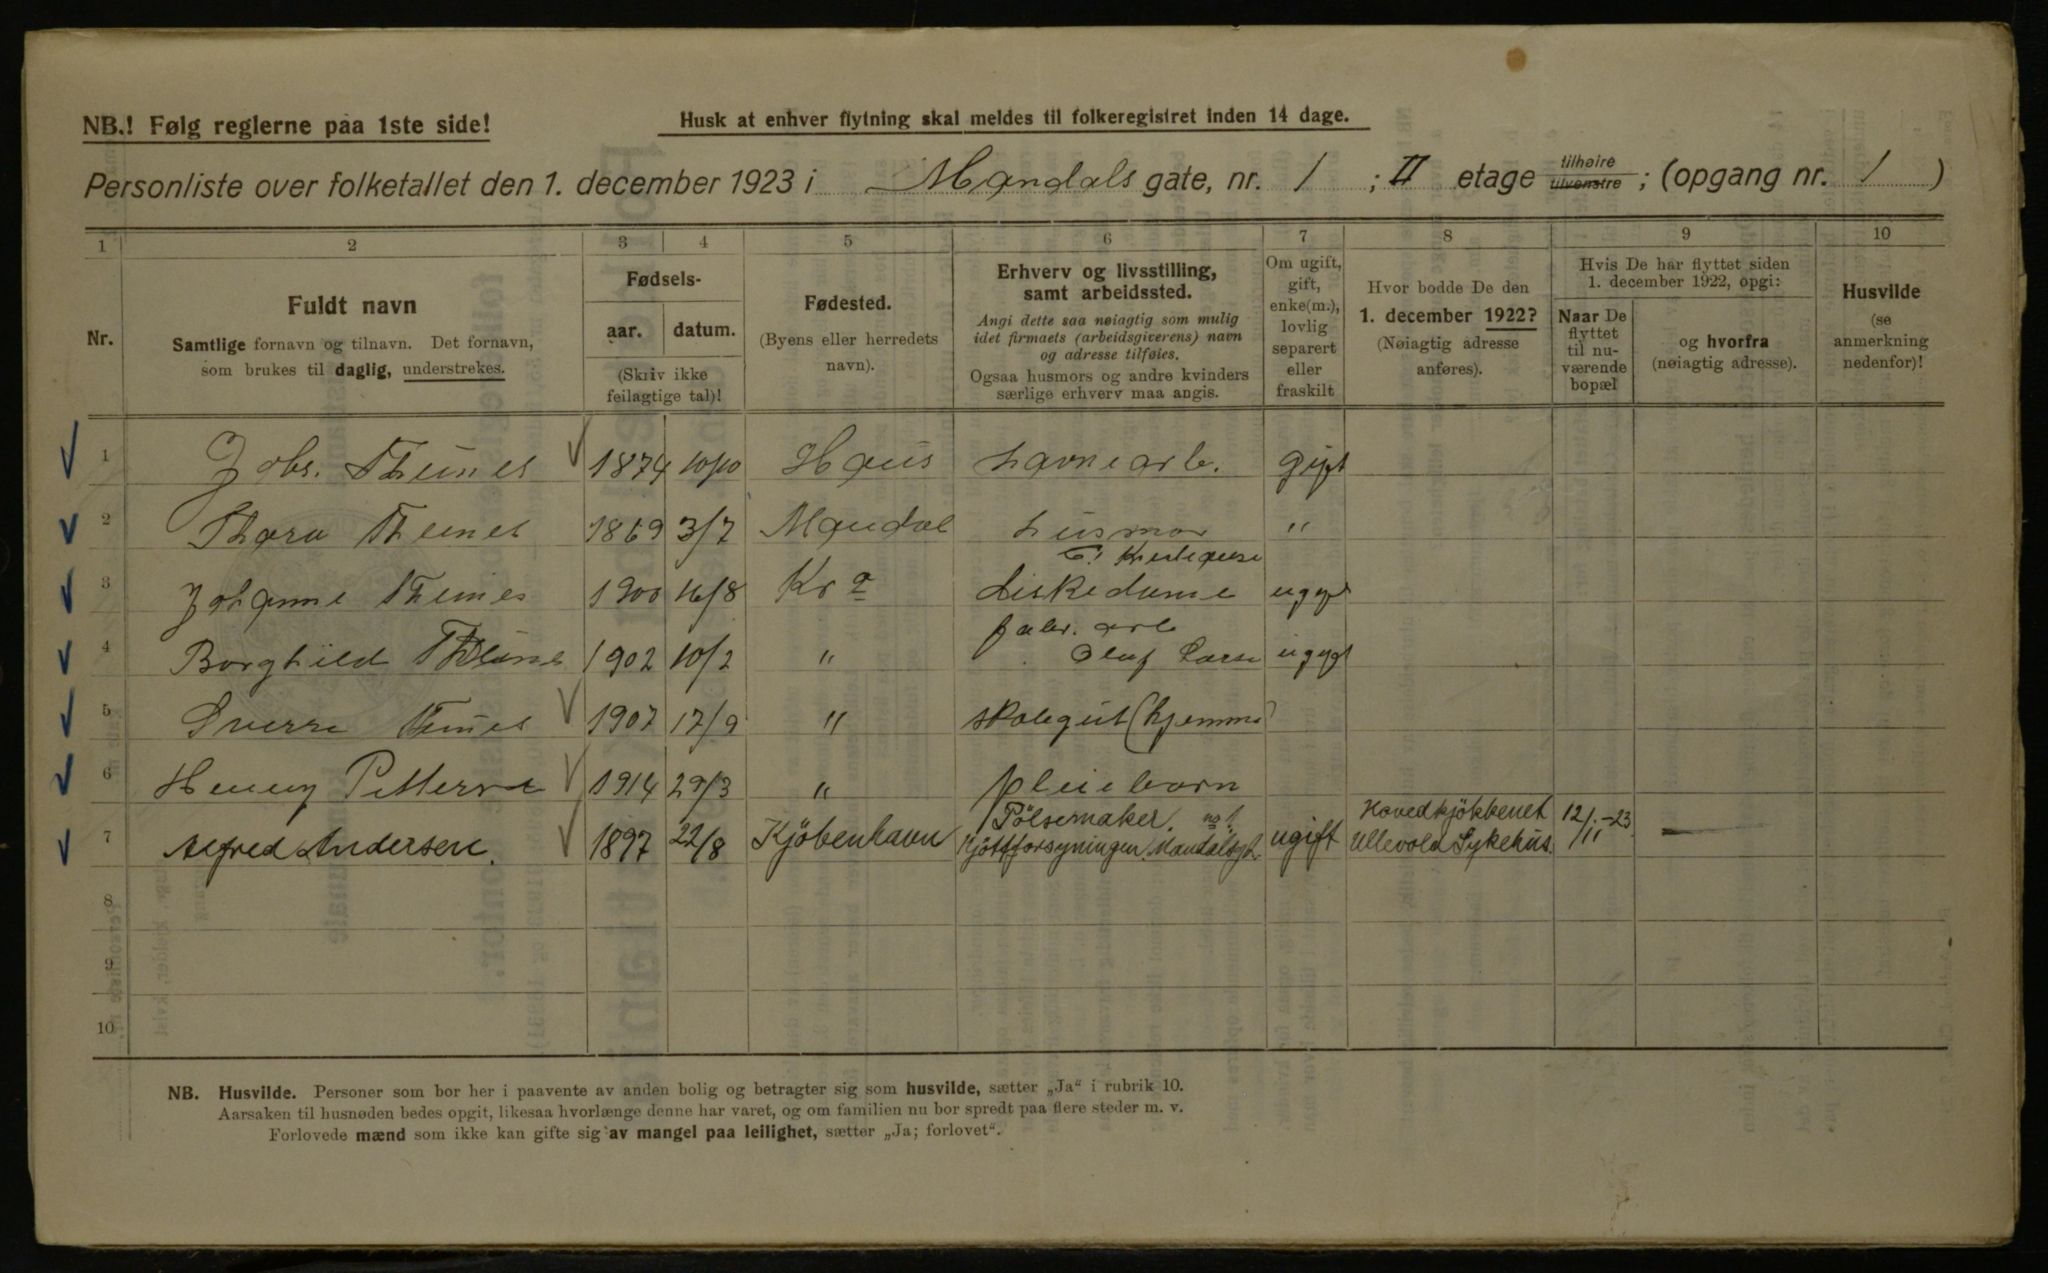 NB.! Følg reglerne paa 1ste side!
Husk at enhver flytning skal meldes til folkeregistret inden 14 dage.
Personliste over folketallet den 1. december 1923 i Mandals gate, nr. 1 ; II etage tilhøire tilvenstre ; (opgang nr. 1 )
1 2 3 4 5 6 7 8 9 10
Nr.
Fuldt navn
Samtlige fornavn og tilnavn. Det fornavn,
som brukes til daglig, understrekes.
Fødsels-
aar. datum.
(Skriv ikke
feilagtige tal)!
Fødested.
(Byens eller herredets
navn).
Erhverv og livsstilling,
samt arbeidssted.
Angi dette saa nøiagtig som mulig
idet firmaets (arbeidsgiverens) navn
og adresse tilføies.
Ogsaa husmors og andre kvinders
særlige erhverv maa angis.
Om ugift,
gift,
enke(m.),
lovlig
separert
eller
fraskilt
Hvor bodde De den
1. december 1922?
(Nøiagtig adresse
anføres).
Hvis De har flyttet siden
1. december 1922, opgi:
Naar De
flyttet
til nu-
værende
bopæl
og hvorfra
(nøiagtig adresse).
Husvilde
(se
anmerkning
nedenfor)!
1 Johs. Theines 1874 10/10 Haus havnearb. gift
2 Thora Theines 1869 3/7 Mandal husmor "
3 Johanne Theines 1900 16/8 Kra diskedame ugift
fabr. arb
4 Borghild Theines 1902 10/2 " Olaf Larsen ugift
5 Sverre Theines 1907 17/9 " skolegut (hjemme)
6 Henny Petterse 1914 29/3 " pleiebarn
7 Alfred Andersen. 1897 22/8 Kjöbenhavn Pölsemaker. no 1. Kjøttforsyningen. Mandalsgt. ugift Hovedkjökkenet Ullevold Sykehus. 12/11-23 —
8
9
10
NB. Husvilde. Personer som bor her i paavente av anden bolig og betragter sig som husvilde, sætter „Ja“ i rubrik 10.
Aarsaken til husnøden bedes opgit, likesaa hvorlænge denne har varet, og om familien nu bor spredt paa flere steder m. v.
Forlovede mænd som ikke kan gifte sig av mangel paa leilighet, sætter „Ja; forlovet“.